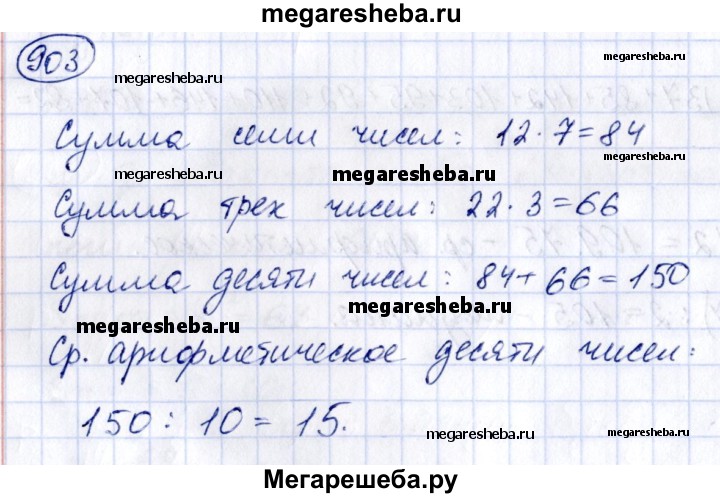 megaresheba.ru
903
megaresheba.ru
megaresheba.ru
Сумма семи чисел: 12·7=84
megaresheba.ru
megaresheba.ru
Сумма трех чисел: 22·3=66
Сумма десяти чисел: 84+66=150
megaresheba.ru
megaresheba.ru
Ср. арифметическое десяти чисел:
150:10=15.
megaresheba.ru
Мегарешеба.ру